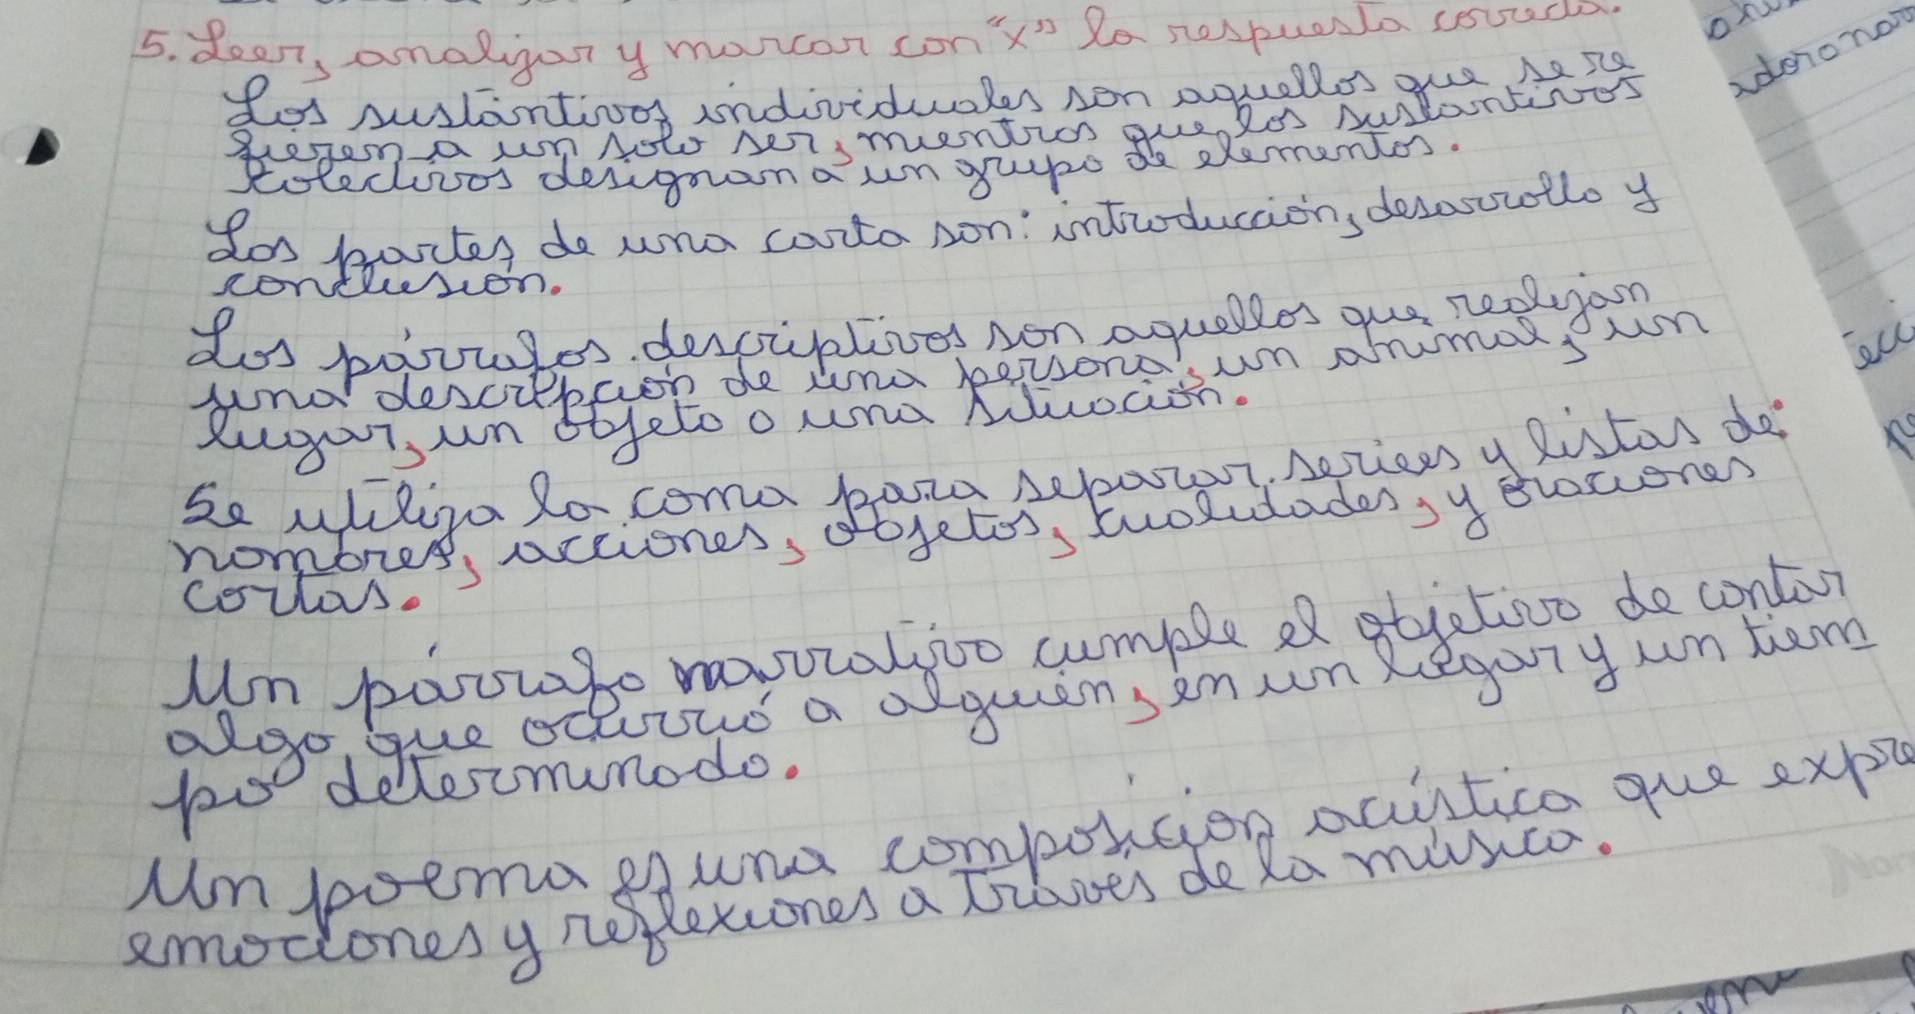 5. Leer, analizar y marcar con "x" la respuesta correcta.
Los sustántivos individuales son aquellos que se re
fieren a un solo ser, mientras que los sustantivos
colectivos designan a un grupo de elementos.
Las partes de una carta son: introducción, desarrollo y
conclusión.
Los párrafos descriptivos son aquellos que realizan
una descripción de una persona, un animal, un
lugar, un objeto o una situación.
Se utiliza la coma para separar series y listas de:
nombres, acciones, objetos, cualidades, y oraciones
cortas.
Un párrafo narrativo cumple el objetivo de contar
algo que ocurrió a alguien, en un lugar y un tiem
po determinado.
Un poema es una composición acústica que expre
emociones y reflexiones a través de la música.